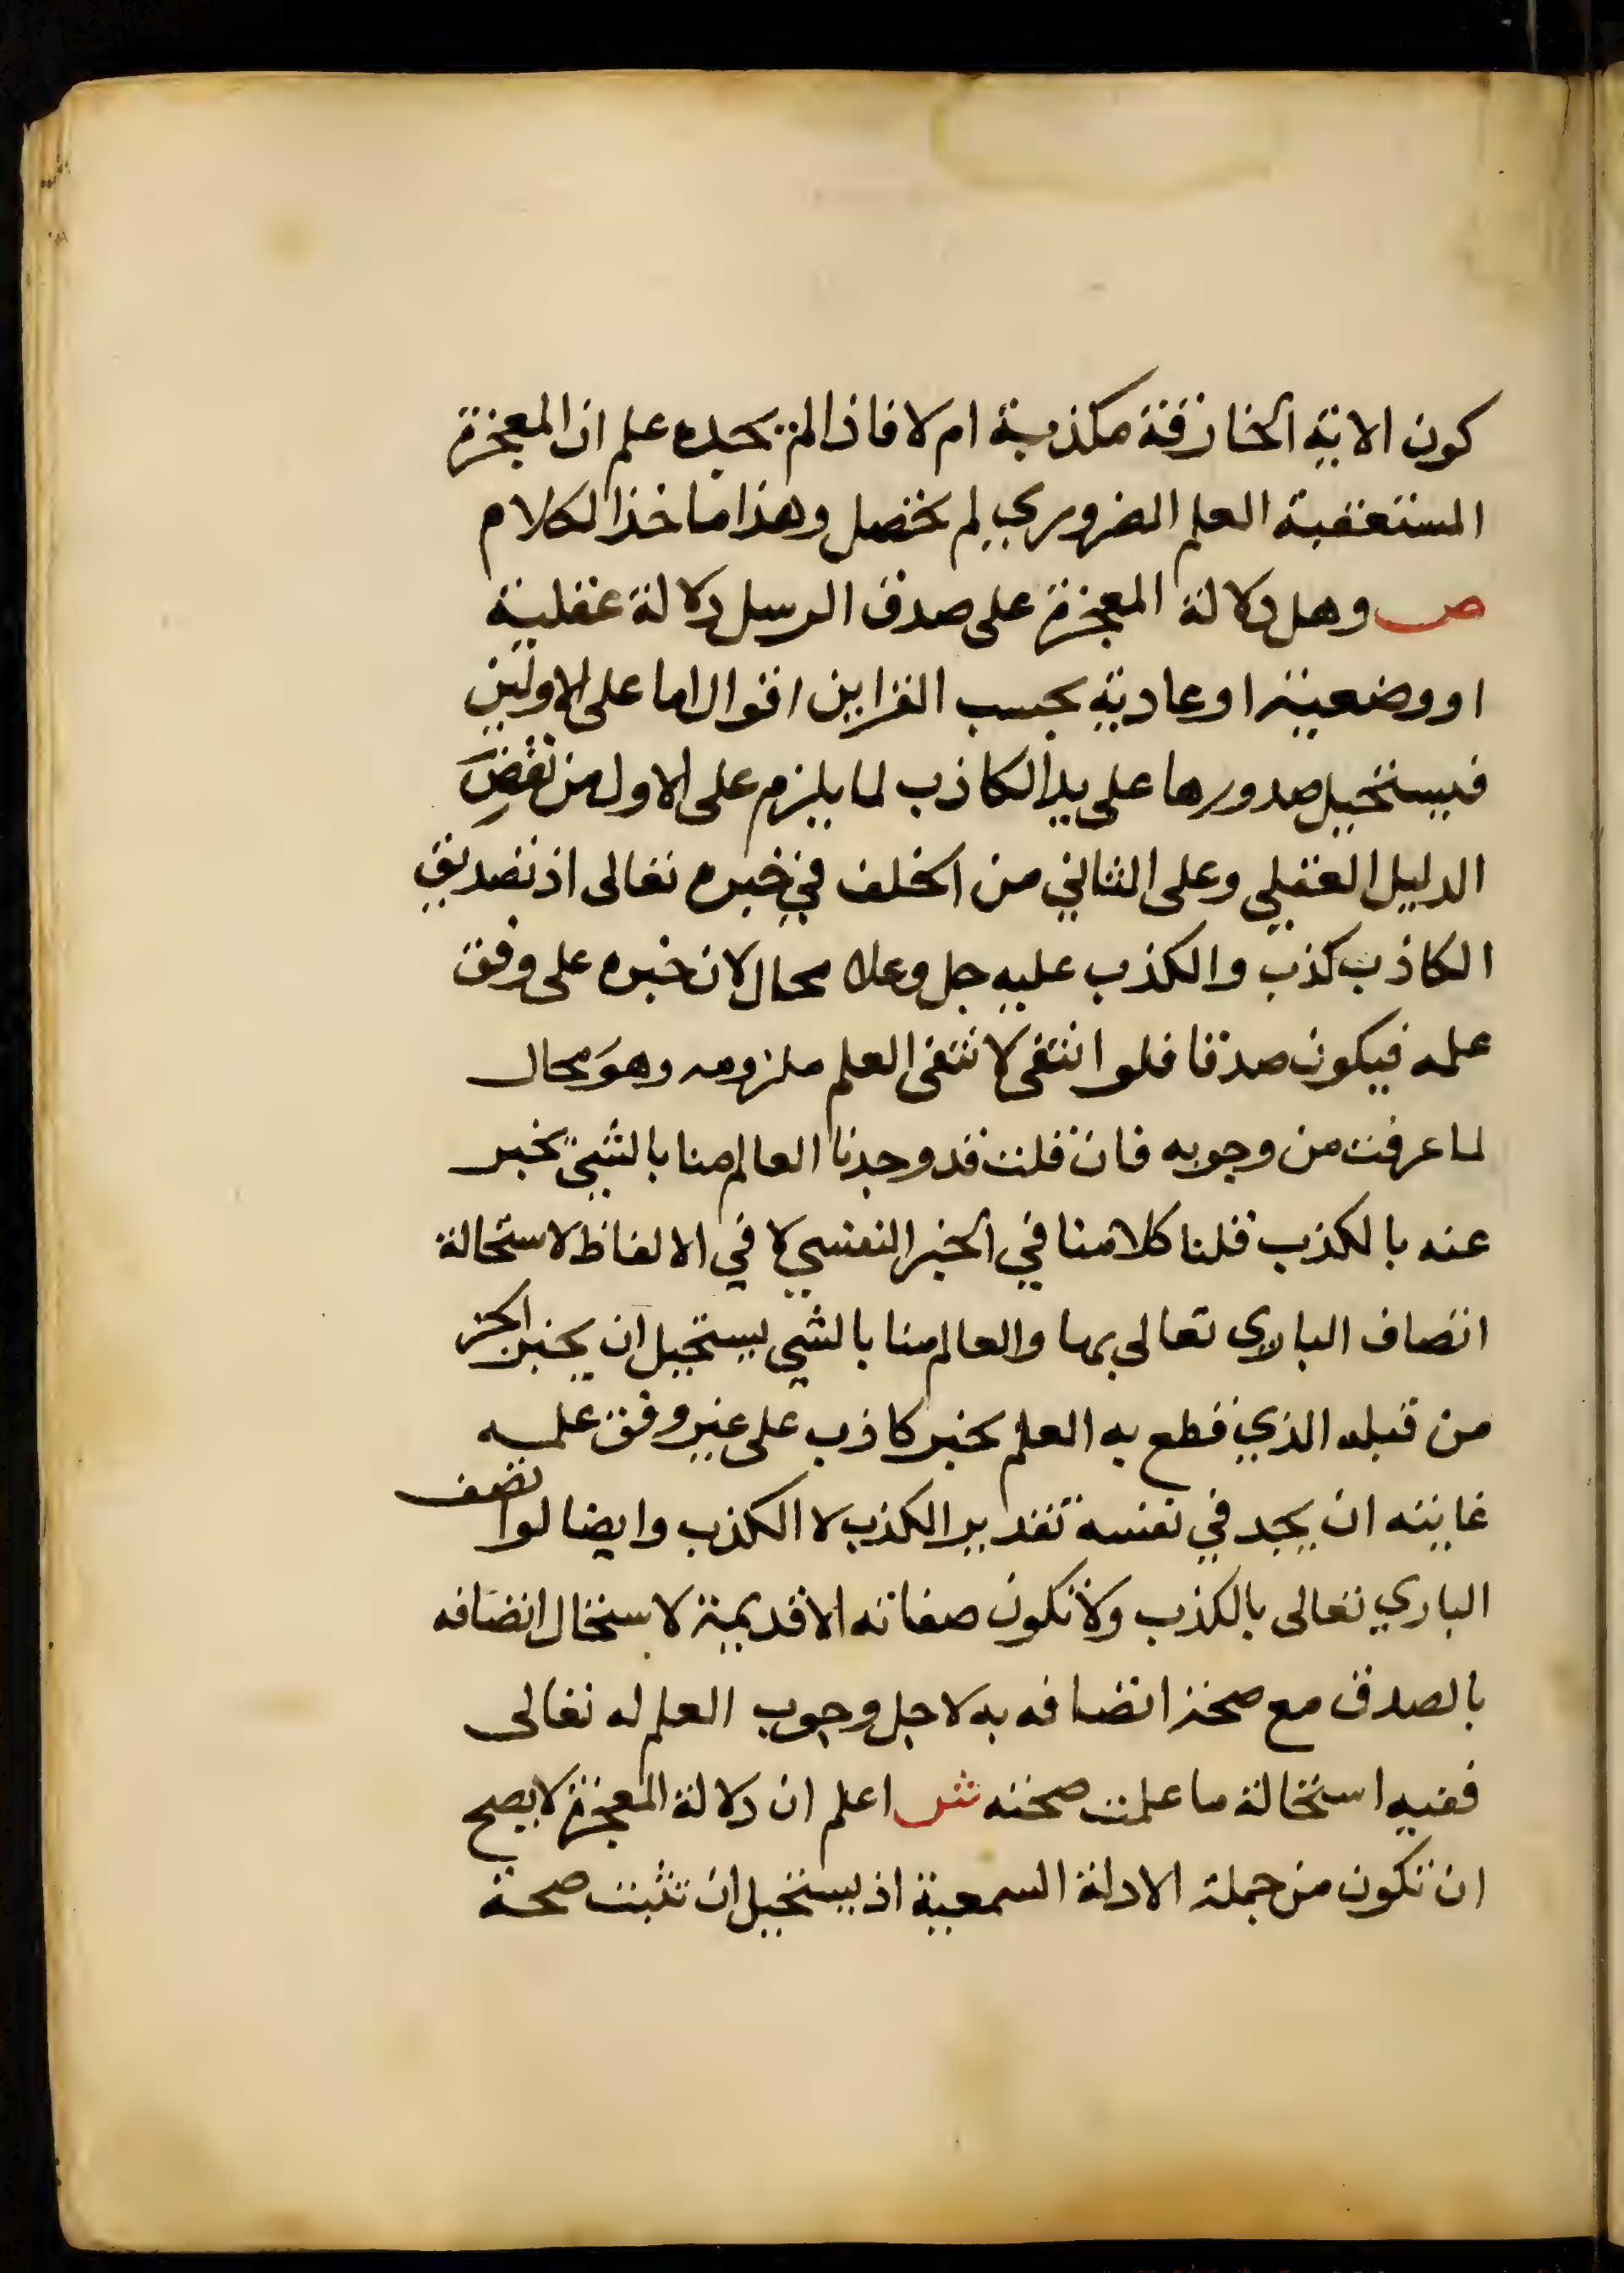 كون الاية الخارقة مكذبة ام لا فاذا لم يجده علم ان المعجزة
المستعقبة العلم الضروري لم تحصل وهذا ماخذ الكلام
ص وهل دلالة المعجزة على صدق الرسل دلالة عقلية
او وضعية او عادية بحسب القراين اقوال اما على الاولين
فيستحيل صدورها على يد الكاذب لما يلزم على الاول من نقض
الدليل العقلي وعلى الثاني من الخلف في خبره تعالى اذ تصديق
الكاذب كذب والكذب عليه جل وعلا محال لان خبره على وفق
علمه فيكون صدقا فلو انتفى لانتفى العلم ملزومه وهو محال
لما عرفت من وجوبه فان قلت قد وجدنا العالم منا بالشي يخبر
عنه بالكذب قلنا كلامنا في الخبر النفسي لا في الالفاظ لاستحالة
اتصاف الباري تعالى بها والعالم منا بالشي يستحيل ان يخبر الجز
من قبله الذي قطع به العلم بخبر كاذب على غير وفق علمه
غايته ان يجد في نفسه تقدير الكذب لا الكذب وايضا لو اتصف
الباري تعالى بالكذب ولا تكون صفاته الا قديمة لاستحال اتصافه
بالصدق مع صحة اتصافه به لاجل وجوب العلم له تعالى
ففيه استحالة ما علمت صحته ش اعلم ان دلالة المعجزة لا يصح
ان تكون من جملة الادلة السمعية اذ يستحيل ان تثبت صحة